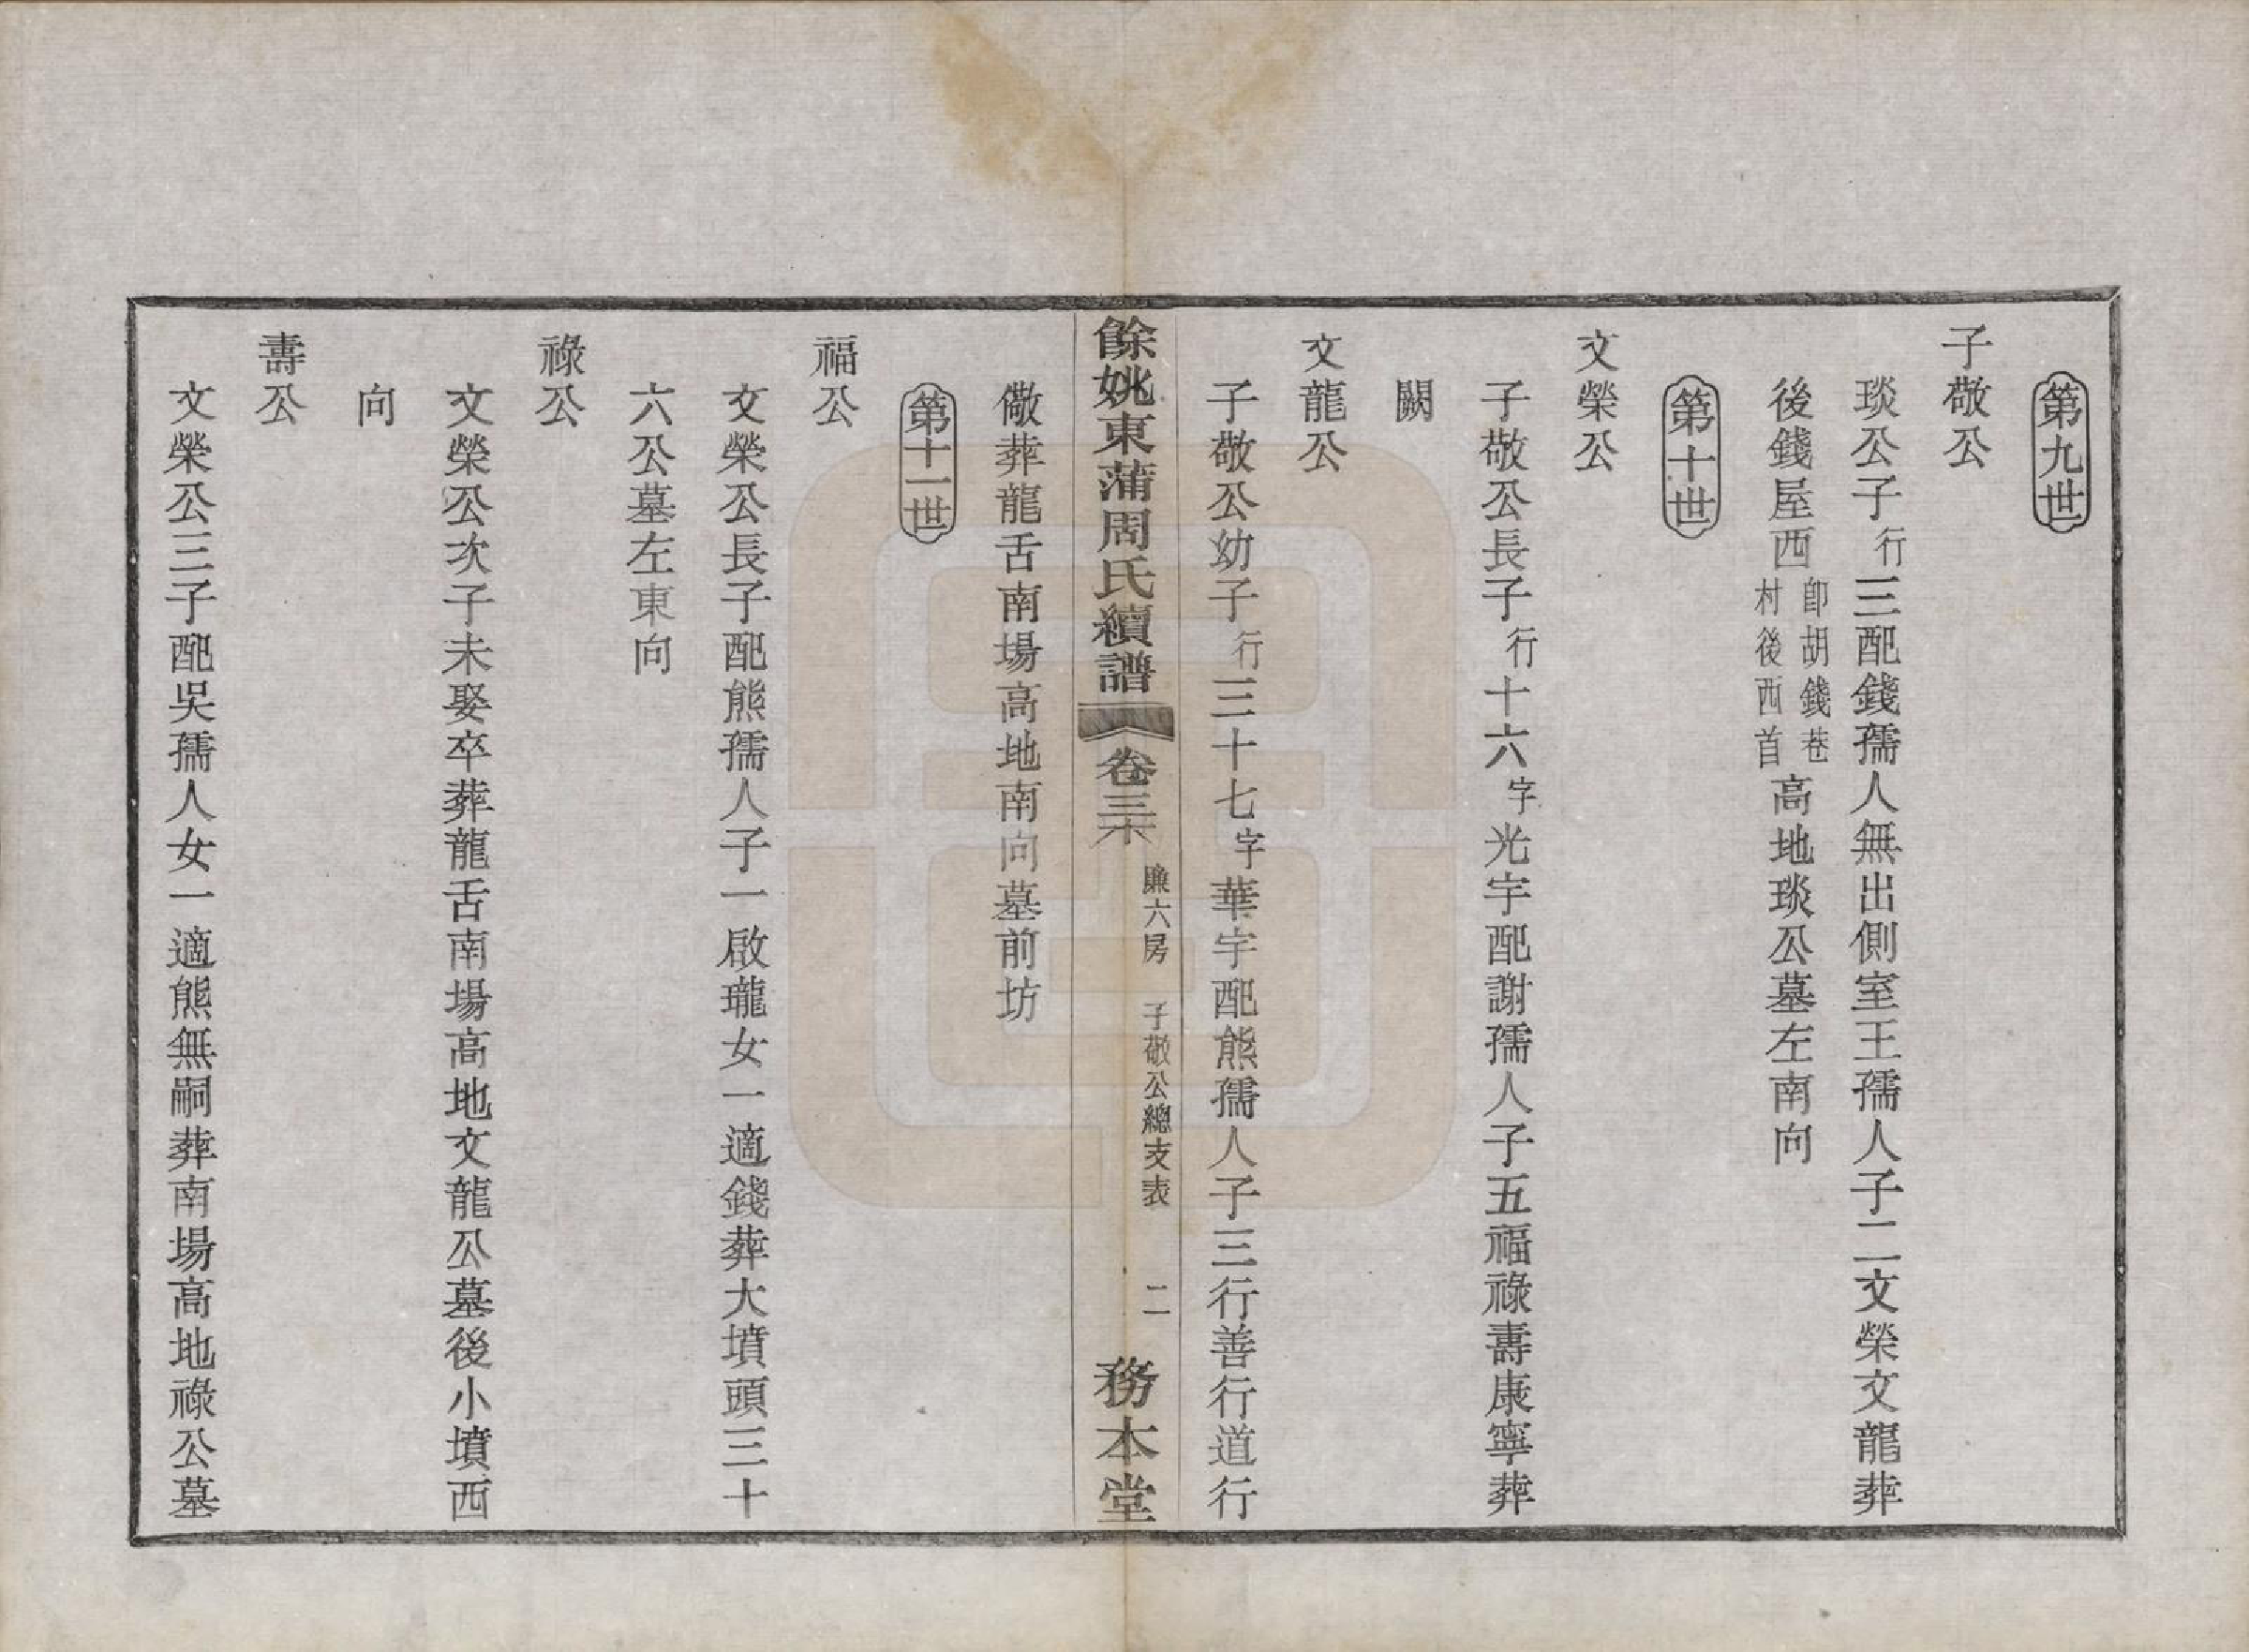 第九世
子敬公
琰公子行三配錢孺人無出側室王孺人子二文榮文龍葬
後錢屋西卽胡錢巷村後西首高地琰公墓左南向
第十世
文榮公
子敬公長子行十六字光宇配謝孺人子五福祿壽康寧葬
闕
文龍公
子敬公幼子行三十七字華宇配熊孺人子三行善行道行
餘姚東蒲周氏續譜
卷三
廉六房 子敬公總支表
二
務本堂
儆葬龍舌南場高地南向墓前坊
第十一世
福公
文榮公長子配熊孺人子一啟瓏女一適錢葬大墳頭三十
六公墓左東向
祿公
文榮公次子未娶卒葬龍舌南場高地文龍公墓後小墳西
向
壽公
文榮公三子配吳孺人女一適熊無嗣葬南場高地祿公墓